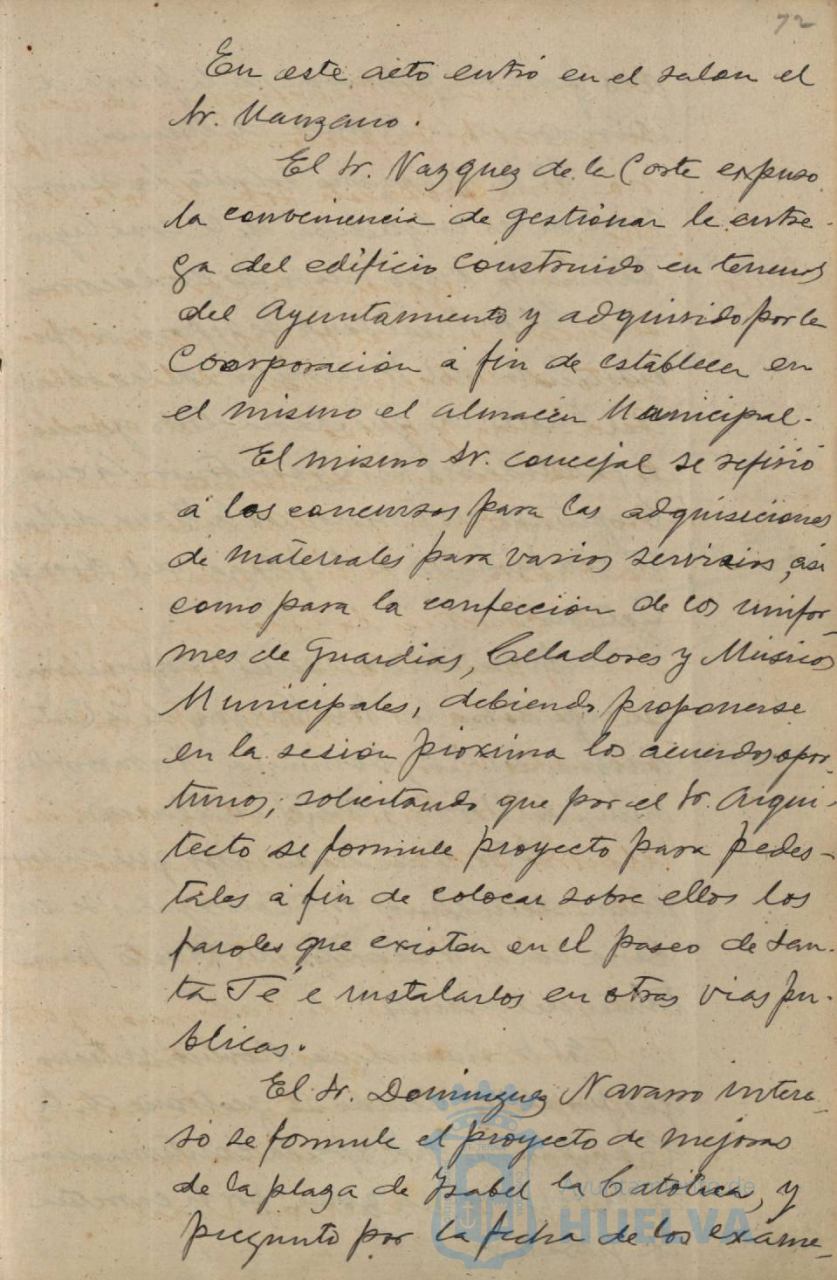 72
En este acto entró en el salon el
Sr. Manzano.
El Sr. Vazquez de la Corte expuso
la conveniencia de gestionar la entre-
ga del edificio construido en terrenos
del Ayuntamiento y adquirido por la
Coorporación á fin de establecer en
el mismo el almacén Municipal.
El mismo Sr. concejal se refirió
á los concursos para las adquisiciones
de materiales para varios servicios, asi
como para la confección de los unifor-
mes de Guardias, Celadores y Músicos
Municipales, debiendo proponerse
en la sesión próxima los acuerdos opor-
tunos; solicitando que por el Sr. Arqui-
tecto se formule proyecto para pedes-
tales á fin de colocar sobre ellos los
faroles que existen en el paseo de San-
ta Fé, e instalarlos en otras vias pu-
blicas.
El Sr. Dominguez Navarro intere-
só se formule el proyecto de mejoras
de la plaza de Ysabel la Católica, y
preguntó por la fecha de los exáme-
Ayuntamiento de
HUELVA